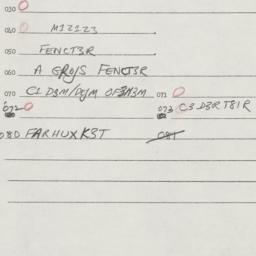 030 O
040 O M12123
050 FENCT3R
060 A GROJS FENCT3R
070 C1 D3M/DJM OF3H3M 071 O
072 O 073 C3 D3R T81R
080 FARHUXK3T 081